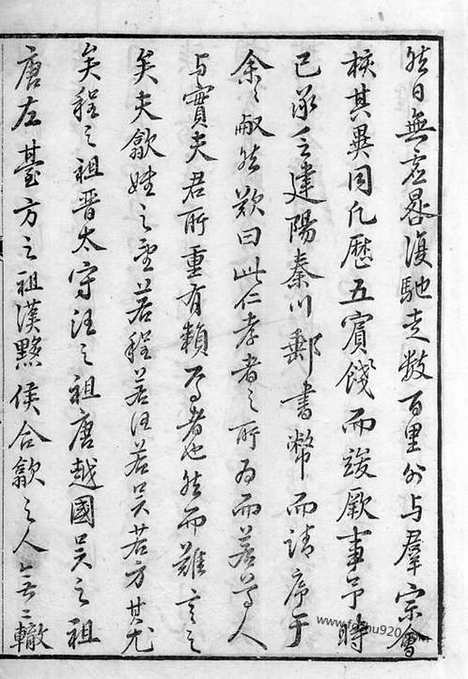 然日無言晷復馳走数百里外与羣宗會
核其異同凡歷五賓餞而竣厥事予時
已承乏建陽秦川郵書幣而請序于
余余瞰然歎曰此仁孝者之所为而若等人
与實夫君所重有賴焉者也然而難言之
矣夫歙姓之望若程若汪若吴若方其尤
矣程之祖晋太守汪之祖唐越國吴之祖
唐左臺方之祖漢黟侯合歙之人無二轍
www.fozhu920.com